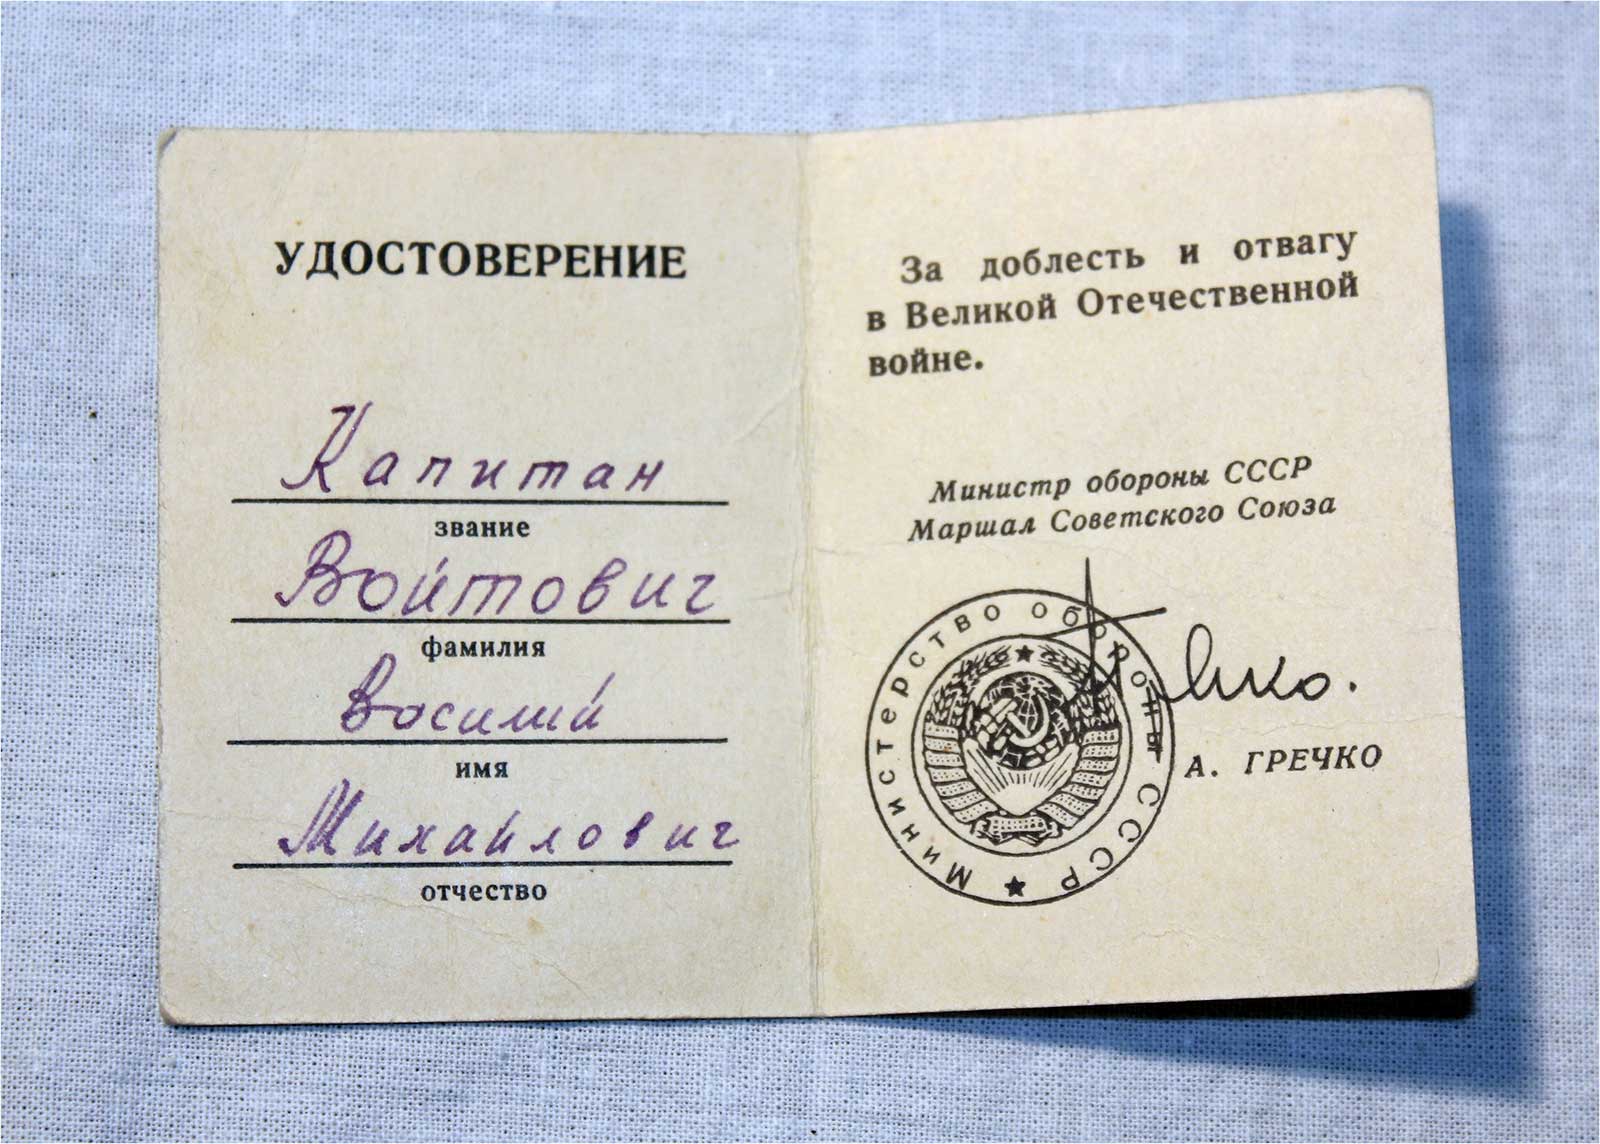 УДОСТОВЕРЕНИЕ
Капитан
звание
Войтович
фамилия
Василий
имя
Михайлович
отчество
За доблесть и отвагу
в Великой Отечественной
войне.
Министр обороны СССР
Маршал Советского Союза
Министерство обороны СССР
А. ГРЕЧКО